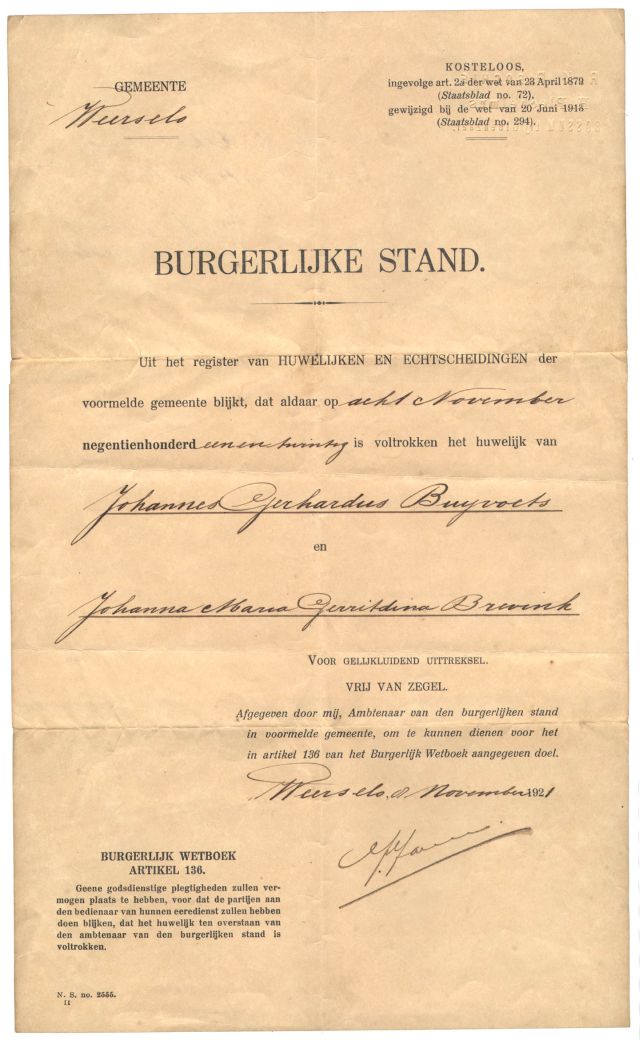 GEMEENTE
Weerselo
KOSTELOOS,
ingevolge art. 2a der wet van 23 April 1879
(Staatsblad no. 72).
gewijzigd bij de wet van 20 Juni 1913
(Staatsblad no. 294).
BURGERLIJKE STAND.
Uit het register van HUWELIJKEN EN ECHTSCHEIDINGEN der
voormelde gemeente blijkt, dat aldaar op acht November
negentienhonderd een en twintig is voltrokken het huwelijk van
Johannes Gerhardus Buyvoets
en
Johanna Maria Gerritdina Brevink
VOOR GELIJKLUIDEND UITTREKSEL.
VRIJ VAN ZEGEL.
Afgegeven door mij, Ambtenaar van den burgerlijken stand
in voormelde gemeente, om te kunnen dienen voor het
in artikel 136 van het Burgerlijk Wetboek aangegeven doel.
Weerselo, 8 November 1921
BURGERLIJK WETBOEK
ARTIKEL 136.
Geene godsdienstige plegtigheden zullen ver-
mogen plaats te hebben, voor dat de partijen aan
den bedienaar van hunnen eeredienst zullen hebben
doen blijken, dat het huwelijk ten overstaan van
den ambtenaar van den burgerlijken stand is
voltrokken.
N. S. no. 2555.
II